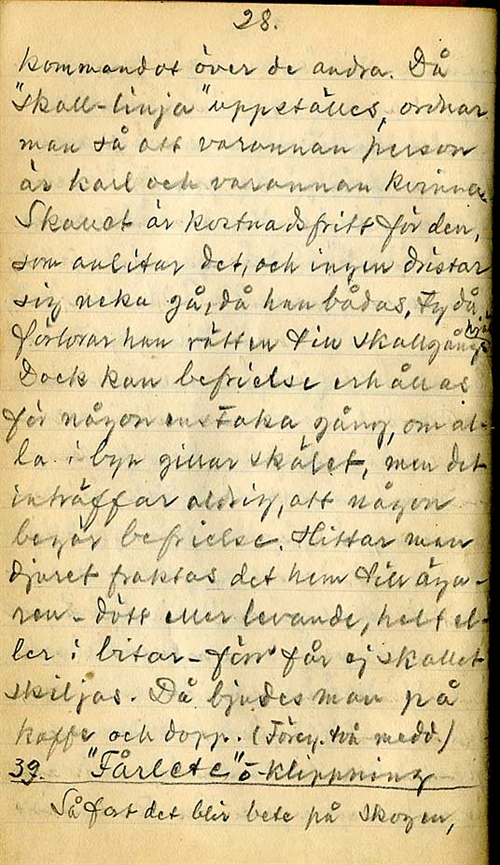 28.
kommandot över de andra. Då
"skall-linja" uppställes, ordnar
man så att varannan person
är karl och varannan kvinna.
Skallet är kostnadsfritt för den,
som anlitar det, och ingen dristar
sig neka gå, då han bådas, ty då
förlorar han rätten till skallgångs
Dock kan befrielse erhållas
för någon enstaka gång, om al-
la i byn gillar skälet, men det
inträffar aldrig, att någon
begär befrielse. Hittar man
djuret fraktas det hem till äga-
ren - dött eller levande, helt el-
ler i bitar - förr får ej skallet
skiljas. Då bjudes man på
kaffe och dopp. (Föreg. två medd.)
39. "Fårlete" o-klippning
Så fort det blir bete på skogen,